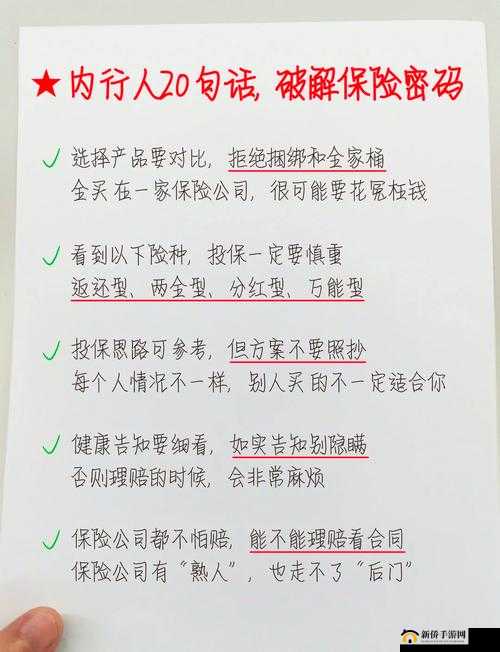 ★内行人20句话,破解保险密码
✓ 选择产品要对比，拒绝捆绑和全家桶
全买在一家保险公司，很可能要花冤枉钱
✓ 看到以下险种，投保一定要慎重
返还型、两全型、分红型、万能型
✓ 投保思路可参考，但方案不要照抄
每个人情况不一样，别人买的不一定适合你
✓ 健康告知要细看，如实告知别隐瞒
否则理赔的时候，会非常麻烦
✓ 保险公司都不怕赔，能不能理赔看合同
保险公司有“熟人”，也走不了“后门”
新侨手游网